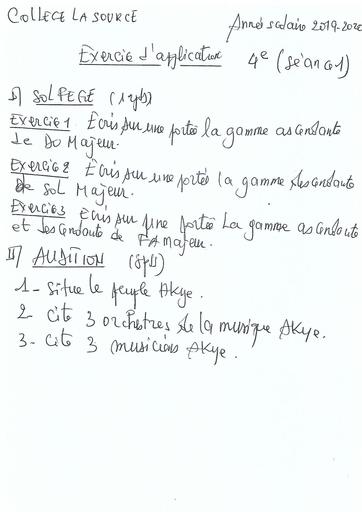 COLLEGE LA SOURCE
Année scolaire 2019-2020
Exercice d'application 4e (séance 1)
I) SOLFEGE (12pts)
Exercice 1 Écris sur une portée la gamme ascendante
de Do Majeur.
Exercice 2 Écris sur une portée la gamme descendante
de Sol Majeur.
Exercice 3 Écris sur une portée la gamme ascendante
et descendante de FA Majeur.
II) AUDITION (8pts)
1- Situe le peuple Akye.
2- Cite 3 orchestres de la musique Akye.
3- Cite 3 musiciens Akye.